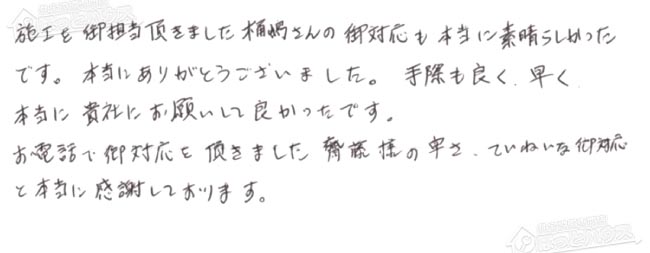 施工を御担当頂きました桶嶋さんの御対応も本当に素晴らしかった
です。本当にありがとうございました。手際も良く、早く、
本当に貴社にお願いして良かったです。
お電話で御対応を頂きました齋藤様の早さ、ていねいな御対応
と本当に感謝しております。